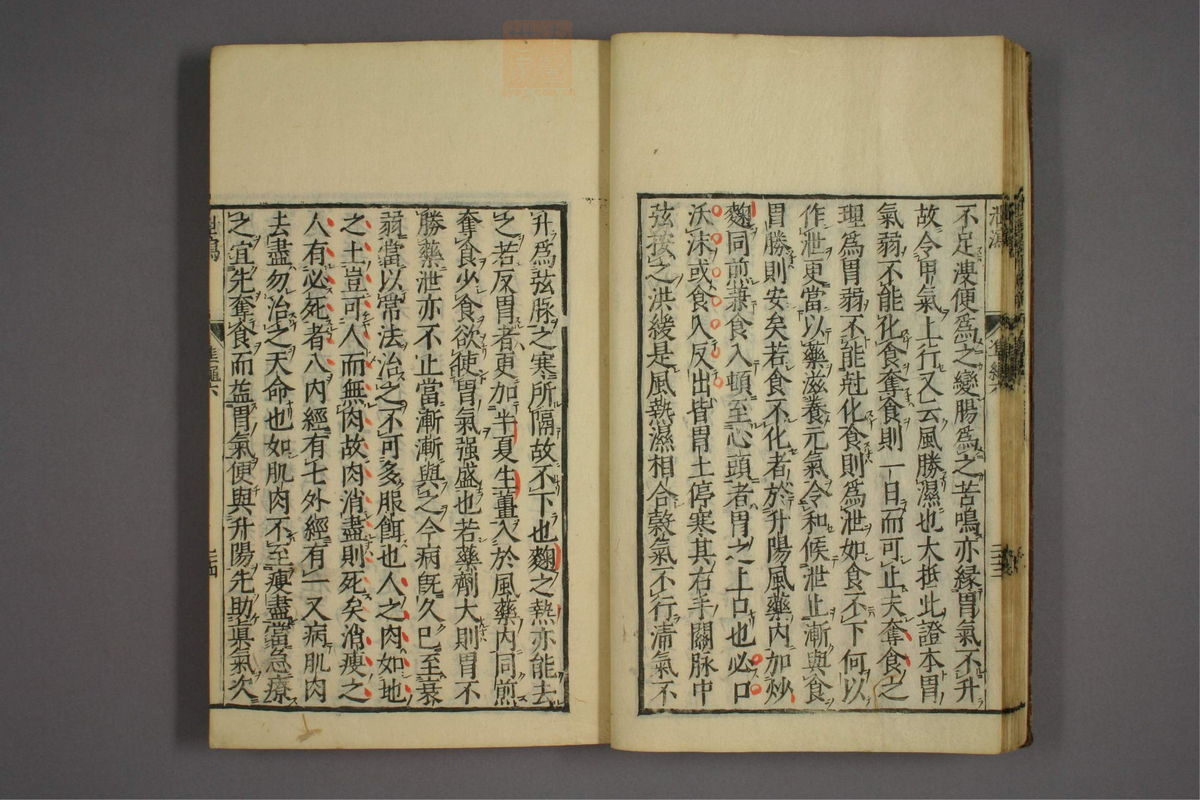 不足溲便爲之變腸爲之苦鳴亦縁胃氣不升
故令甲氣上行又云風勝濕也大抵此證本胃
氣弱不能化食奪食則一日而可止夫奪食之
理爲胃弱不能尅化食則爲泄如食不下何以
作泄更當以藥滋養元氣令和候泄止漸與食
胃勝則安矣若食不化者於升陽風藥內加炒
麴同煎兼食入頓至心頭者胃之上口也必口
沃沫或食入反出皆胃土停寒其右手關脉中
弦按之洪緩是風熱濕相合穀氣不行清氣不
升爲弦脉之寒所隔故不下也麴之熱亦能去
之若反胃者更加半夏生薑入於風藥內同煎
奪食少食欲使胃氣强盛也若藥劑大則胃不
勝藥泄亦不止當漸漸與之今病旣久已至衰
弱當以常法治之不可多服餌也人之肉如地
之土豈可人而無肉故肉消盡則死矣消瘦之
人有必死者八內經有七外經有一又病肌肉
去盡勿治之天命也如肌肉不至瘦盡當急療
之宜先奪食而益胃氣便與升陽先助眞氣次
泄瀉
準繩六
三十四